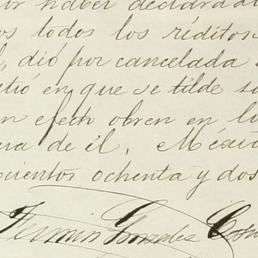 por haber declarad
os todos los réditos
l, dió por cancelada
itió en que se tilde su
n efecto obren en la
ura de él. Méxi
cuentos ochenta y dos
Fermin Gonzalez Cos